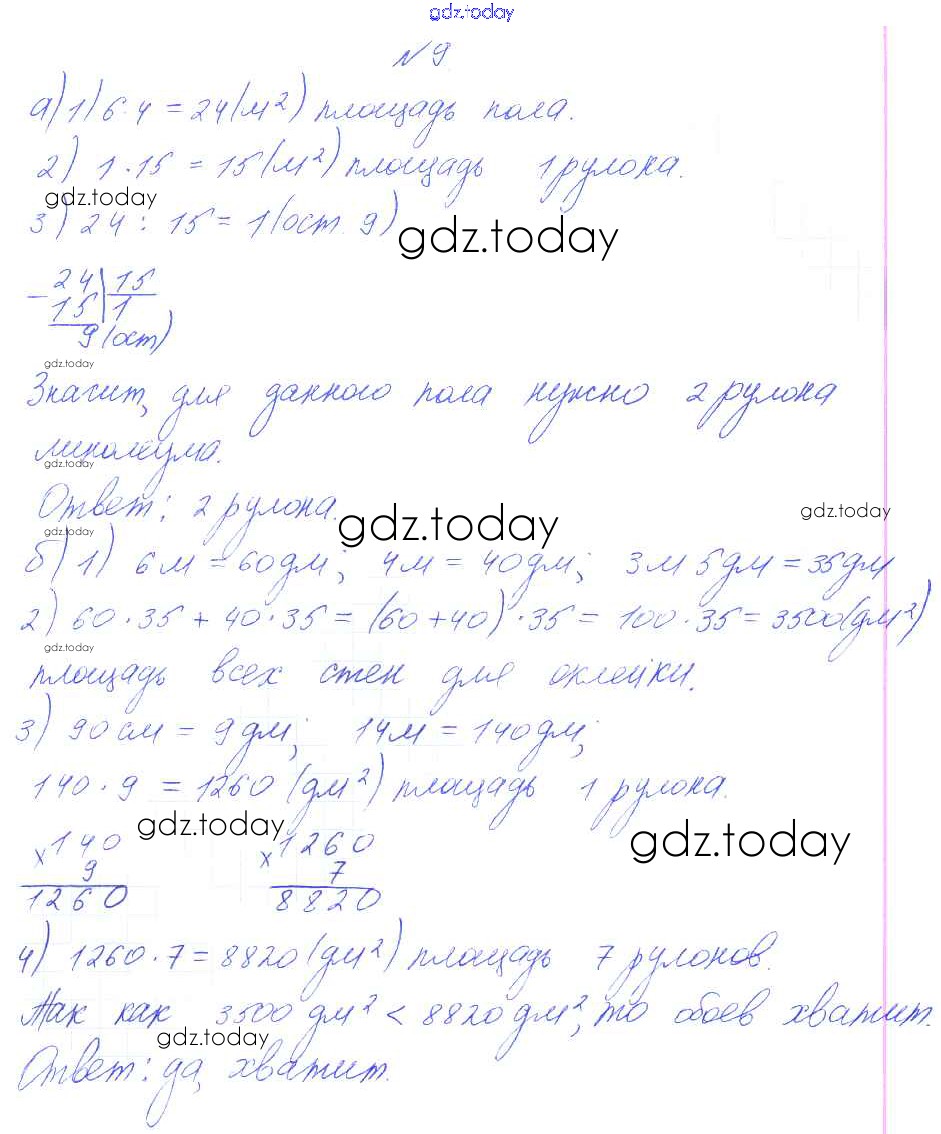 gdz.today
№ 9
а) 1) 6·4 = 24 (м²) площадь пола.
2) 1·15 = 15 (м²) площадь 1 рулона.
gdz.today
3) 24 : 15 = 1 (ост. 9)
gdz.today
24 | 15
- 15 | 1
9 (ост)
gdz.today
Значит, для данного пола нужно 2 рулона
линолеума.
gdz.today
Ответ: 2 рулона.
gdz.today
gdz.today
gdz.today
б) 1) 6м = 60дм; 4м = 40дм; 3м 5дм = 35дм
2) 60·35 + 40·35 = (60+40)·35 = 100·35 = 3500(дм²)
gdz.today
площадь всех стен для оклейки.
3) 90см = 9дм; 14м = 140дм;
140·9 = 1260 (дм²) площадь 1 рулона.
gdz.today
gdz.today
×140 ×1260
9 7
1260 8820
4) 1260·7 = 8820 (дм²) площадь 7 рулонов.
Так как 3500 дм² < 8820 дм², то обоев хватит.
gdz.today
Ответ: да, хватит.